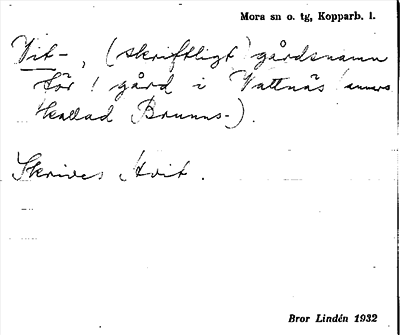 Mora sn o. tg, Kopparb. l.
Vit-, (skriftligt) gårdsnamn
för 1 gård i Vattnäs (annars
kallad Brunns-).
Skrives Hvit.
Bror Lindén 1932